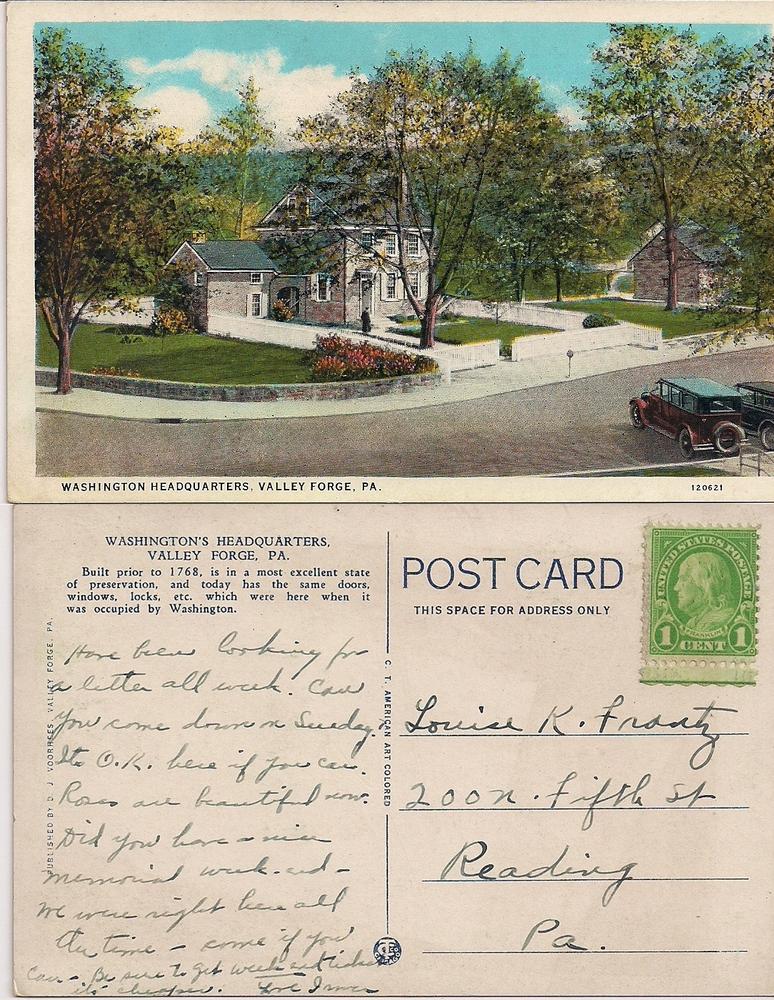 WASHINGTON HEADQUARTERS, VALLEY FORGE, PA.
120621
WASHINGTON'S HEADQUARTERS,
VALLEY FORGE, PA.
Built prior to 1768, is in a most excellent state
of preservation, and today has the same doors,
windows, locks, etc. which were here when it
was occupied by Washington.
PUBLISHED BY D. J. VOORHEES, VALLEY FORGE, PA.
Have been looking for
a letter all week. Can
you come down on Sunday.
Its O.K. here if you can.
Roses are beautiful now.
Did you have a nice
memorial week-end -
We were right here all
the time - come if you
can - Be sure to get week end ticket
it's cheaper. Love
C. T. AMERICAN ART COLORED
POST CARD
THIS SPACE FOR ADDRESS ONLY
UNITED STATES POSTAGE
FRANKLIN
1 CENT 1
Louise K. Frantz
200 N. Fifth St
Reading
Pa.